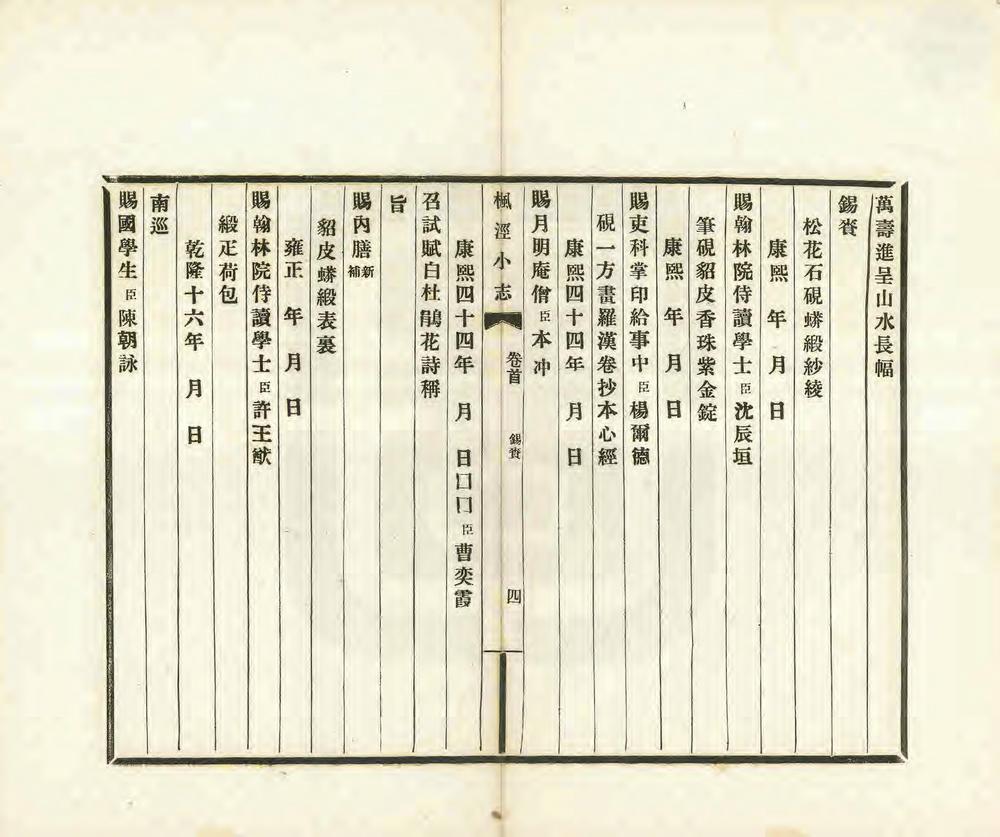 萬壽進呈山水長幅
錫賚
松花石硯蟒緞紗綾
康熙　年　月　日
賜翰林院侍讀學士臣沈辰垣
筆硯貂皮香珠紫金錠
康熙　年　月　日
賜吏科掌印給事中臣楊爾德
硯一方畫羅漢卷抄本心經
康熙四十四年　月　日
賜月明庵僧臣本冲
楓涇小志　卷首　錫賚　四
康熙四十四年　月　日囗囗臣曹奕霞
召試賦白杜鵑花詩稱
旨
賜內膳新補
貂皮蟒緞表裏
雍正　年　月　日
賜翰林院侍讀學士臣許王猷
緞疋荷包
乾隆十六年　月　日
南巡
賜國學生臣陳朝詠